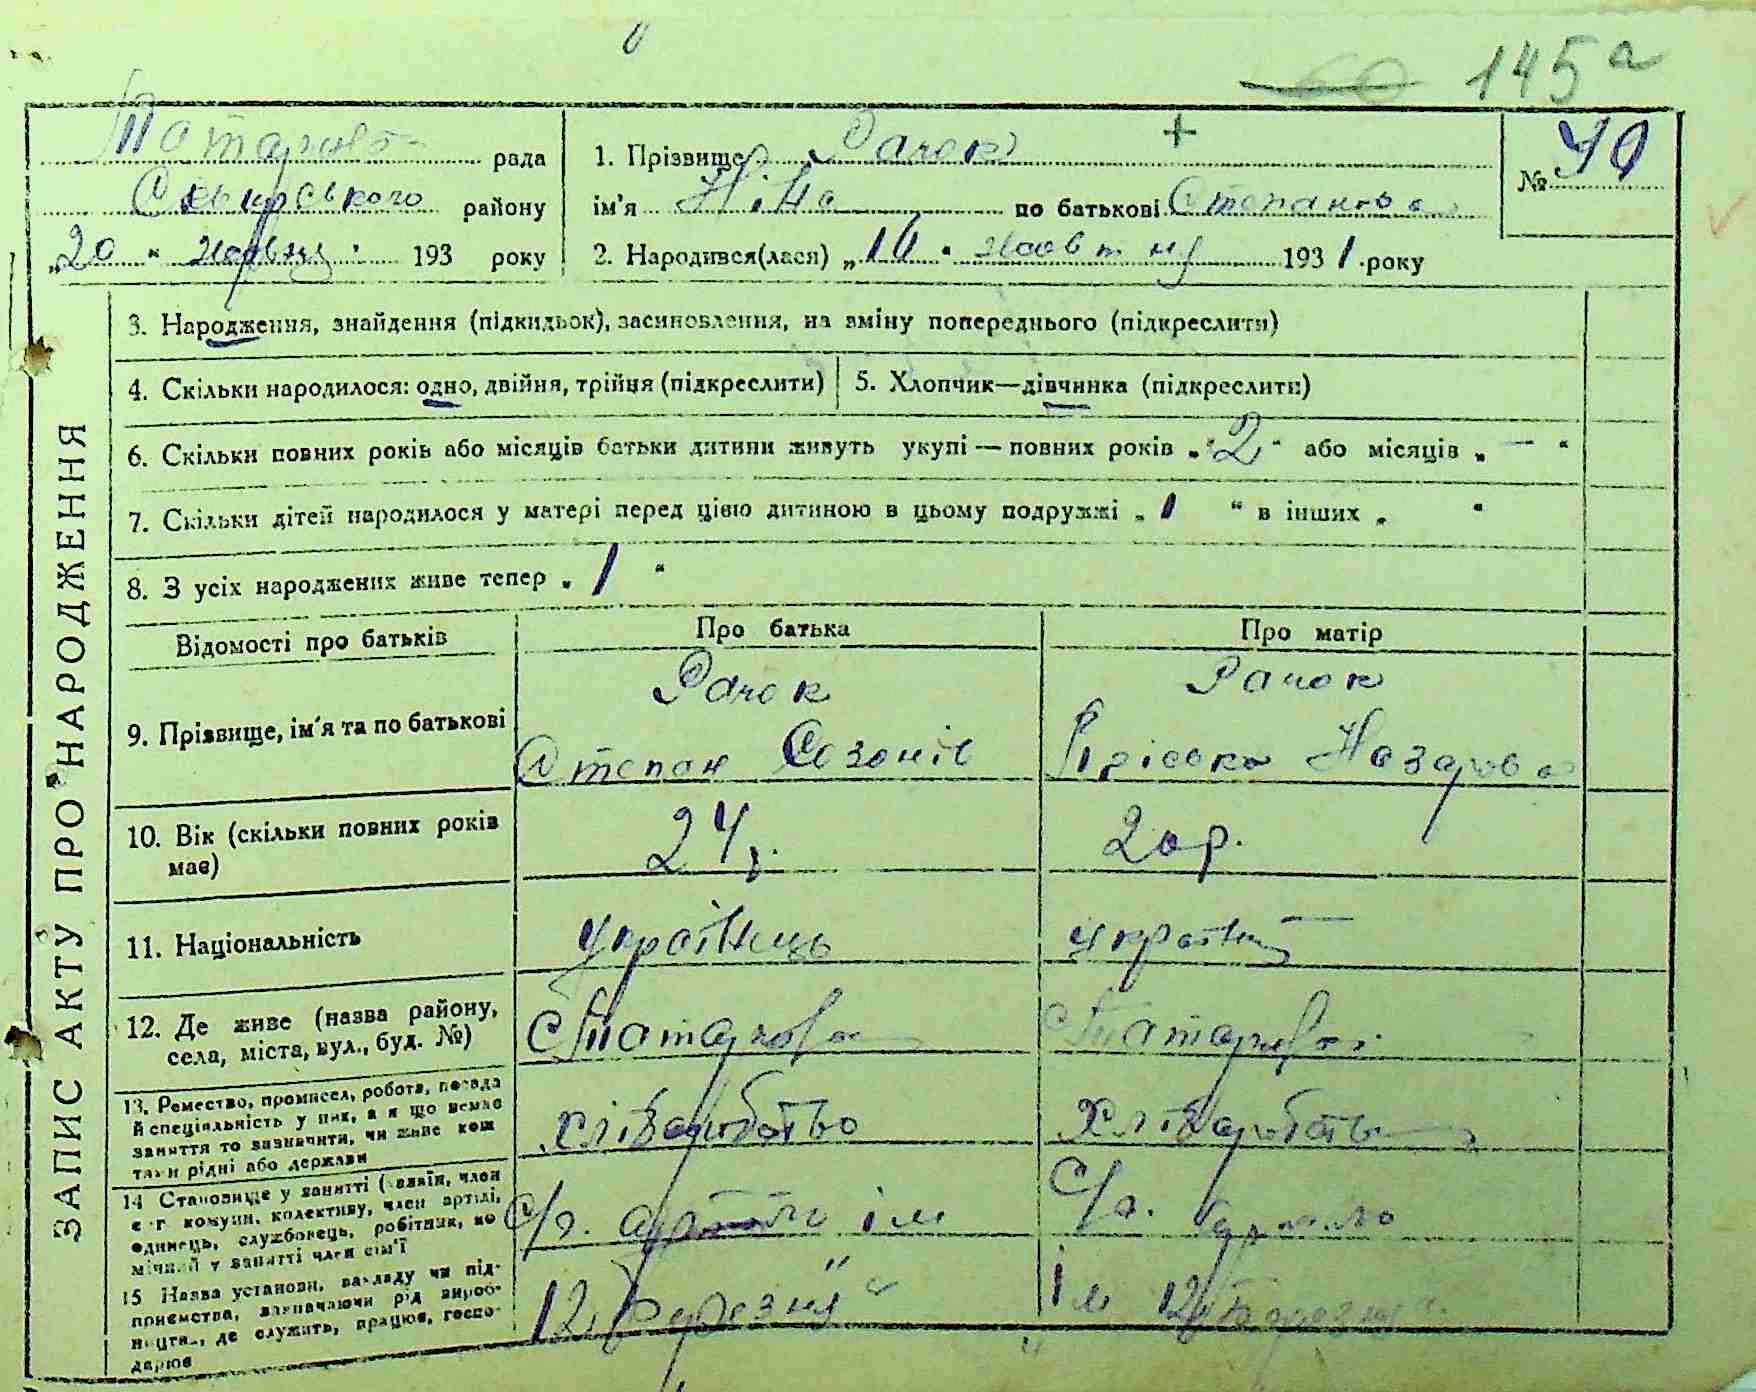 60 145а
Татарівс рада
Сквирського району
„20“ жовтня 193 року
1. Прізвище Рачок
ім'я Ніна по батькові Степанова
2. Народився(лася) „16“ жовтня 1931 року
№ 40
ЗАПИС АКТУ ПРО НАРОДЖЕННЯ
3. Народження, знайдення (підкидьок), засиновлення, на зміну попереднього (підкреслити)
4. Скільки народилося: одно, двійня, трійня (підкреслити)
5. Хлопчик—дівчинка (підкреслити)
6. Скільки повних років або місяців батьки дитини живуть укупі — повних років „2“ або місяців „—“
7. Скільки дітей народилося у матері перед цією дитиною в цьому подружжі „1“ в інших „ “
8. З усіх народжених живе тепер „1“
Відомості про батьків Про батька Про матір
9. Прізвище, ім'я та по батькові
Рачок
Степан Созонів
Рачок
Пріська Назарова
10. Вік (скільки повних років
має)
24 р.
20 р.
11. Національність
українець
україн
12. Де живе (назва району,
села, міста, вул., буд. №)
с Татарівка
с Татарівка
13. Ремество, промисел, робота, посада
й спеціяльність у них, а якщо немає
заняття то зазначити, чи живе кош
там рідні або держави
хліборобство
хліборобство
14 Становище у занятті (хазяїн, член
с-г комуни, колективу, член артілі,
одинець, службовець, робітник, по
мічний у занятті член сім'ї
С/г. артіль ім
С/г. артіль
15 Назва установи, закладу чи під-
приємства, зазначаючи рід вироб-
ництва, де служить, працює, госпо-
дарює
„12 березня“
ім „12 березня“